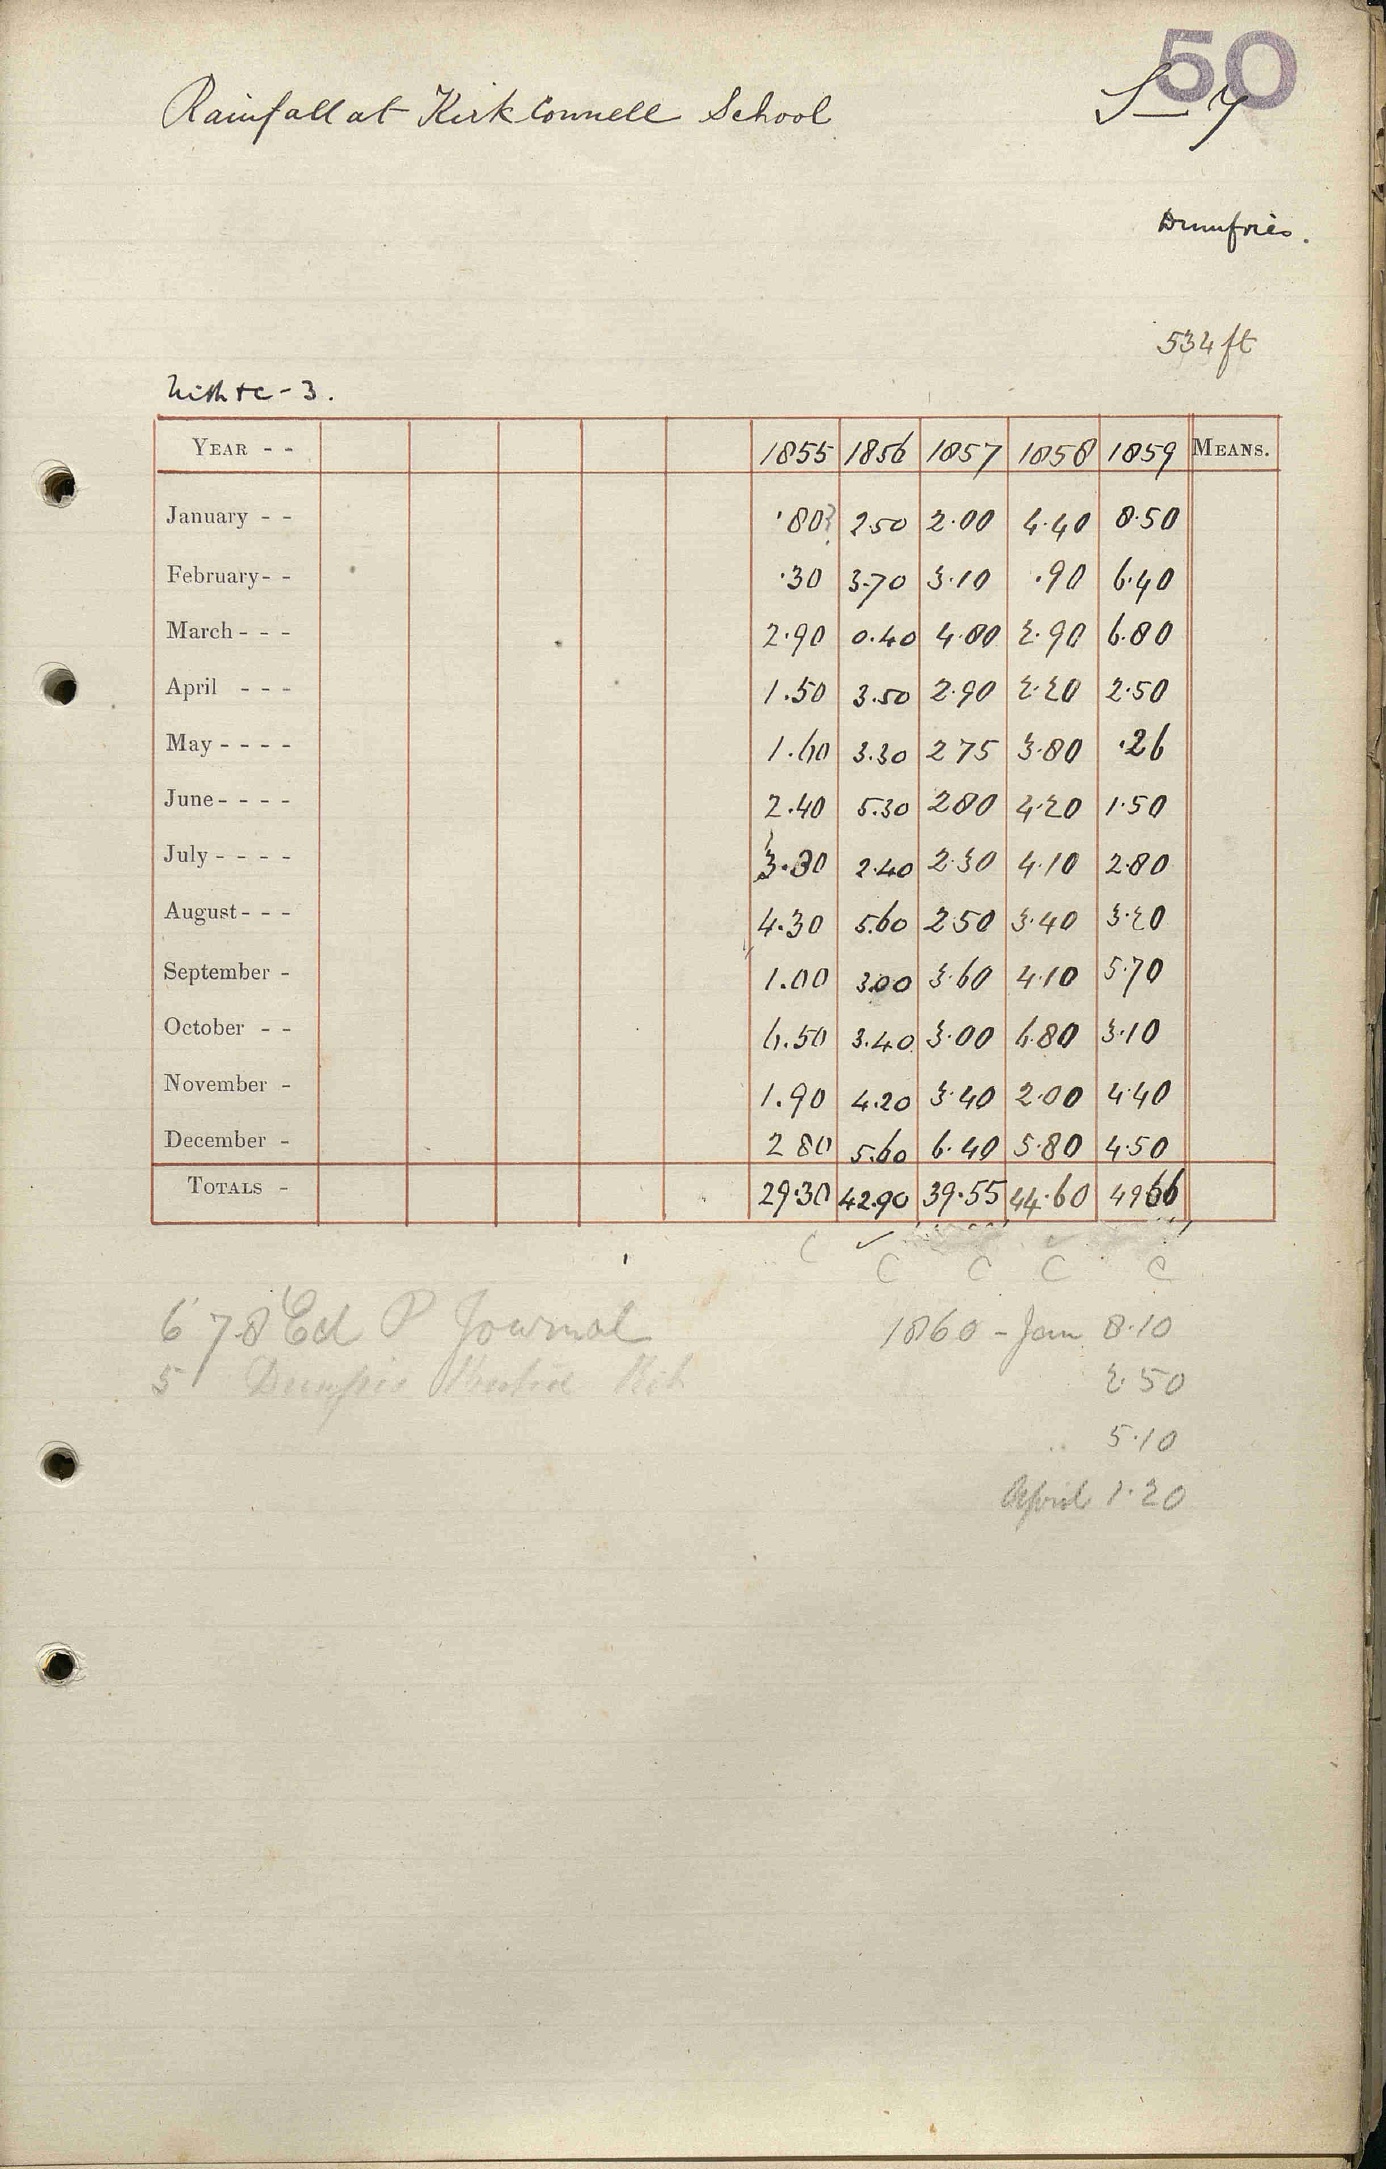 50
Rainfall at Kirkconnell School S—7
Dumfries.
534 ft
Nith &c - 3.
YEAR - - 1855 1856 1857 1858 1859 MEANS.
January - - ·80? 2.50 2·00 4·40 8·50
February - - ·30 3.70 3·10 ·90 6·40
March - - - 2·90 0.40 4·80 2·90 6·80
April - - - 1.50 3.50 2·90 2·20 2·50
May - - - - 1.60 3.30 2 75 3·80 ·26
June - - - - 2.40 5.30 2 80 4·20 1·50
July - - - - 3.30 2.40 2·30 4·10 2·80
August - - - 4.30 5.60 2 50 3·40 3·20
September - 1.00 3.00 3·60 4·10 5·70
October - - 6.50 3.40 3·00 6·80 3·10
November - 1.90 4.20 3·40 2·00 4·40
December - 2 80 5.60 6·40 5·80 4·50
TOTALS - 29·30 42.90 39·55 44·60 49 66
C C C C C
6 7 8 Ed P Journal 1860 - Jan 8·10
5 2·50
5·10
April 1·20